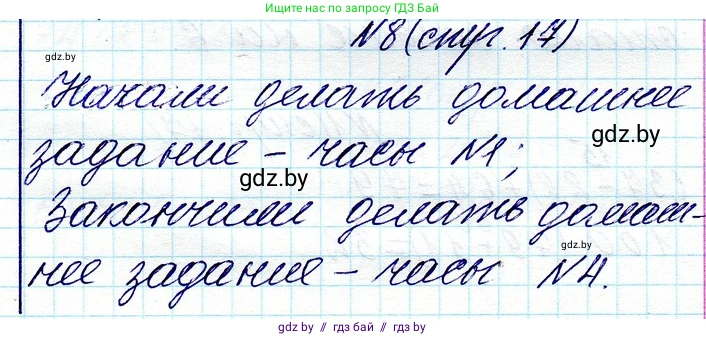 Ищите нас в Telegram по запросу ГДЗ БАЙ
№8 (стр. 17)
gdz.by
Начали делать домашнее
gdz.by
задание – часы №1;
gdz.by
Закончили делать домаш-
gdz.by
нее задание – часы №4.
gdz.by // гдз бай // gdz.by